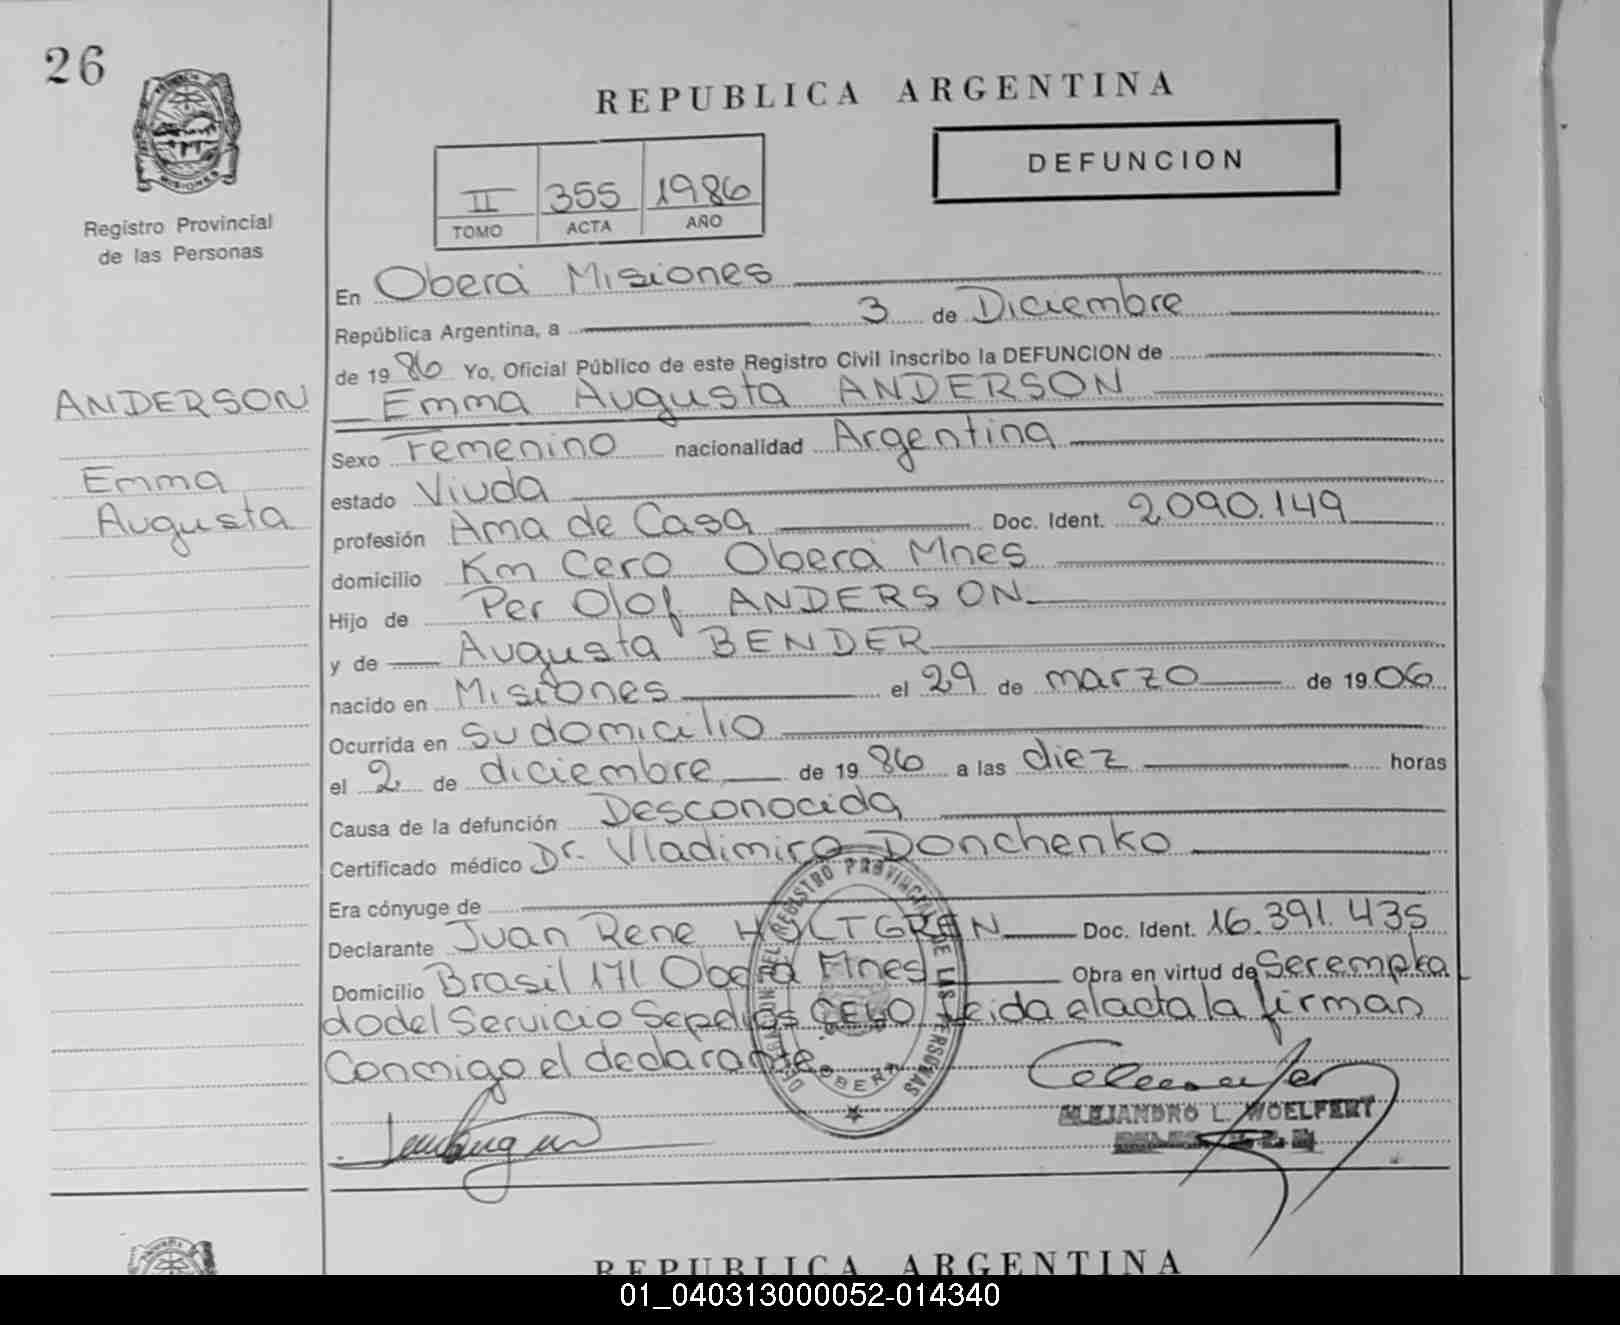 26
MISIONES
Registro Provincial
de las Personas
REPUBLICA ARGENTINA
DEFUNCION
II 355 1986
TOMO ACTA AÑO
En Oberá Misiones
República Argentina, a 3 de Diciembre
de 1986 Yo, Oficial Público de este Registro Civil inscribo la DEFUNCION de
Emma Augusta ANDERSON
ANDERSON
Emma
Augusta
Sexo Femenino nacionalidad Argentina
estado Viuda
profesión Ama de Casa Doc. Ident. 2.090.149
domicilio Km Cero Oberá Mnes
Hijo de Per Olof ANDERSON
y de Augusta BENDER
nacido en Misiones el 29 de marzo de 1906
Ocurrida en su domicilio
el 2 de diciembre de 1986 a las diez horas
Causa de la defunción Desconocida
Certificado médico Dr. Vladimiro Donchenko
Era cónyuge de
Declarante Juan Rene HULTGREN Doc. Ident. 16.391.435
Domicilio Brasil 171 Oberá Mnes Obra en virtud de Ser empleado
do del Servicio Sepelios CELO Leida el acta la firman
Conmigo el declarante.
DEL REGISTRO PROVINCIAL DE LAS PERSONAS
OBERA
ALEJANDRO L. WOELFERT
REPUBLICA ARGENTINA
01_040313000052-014340